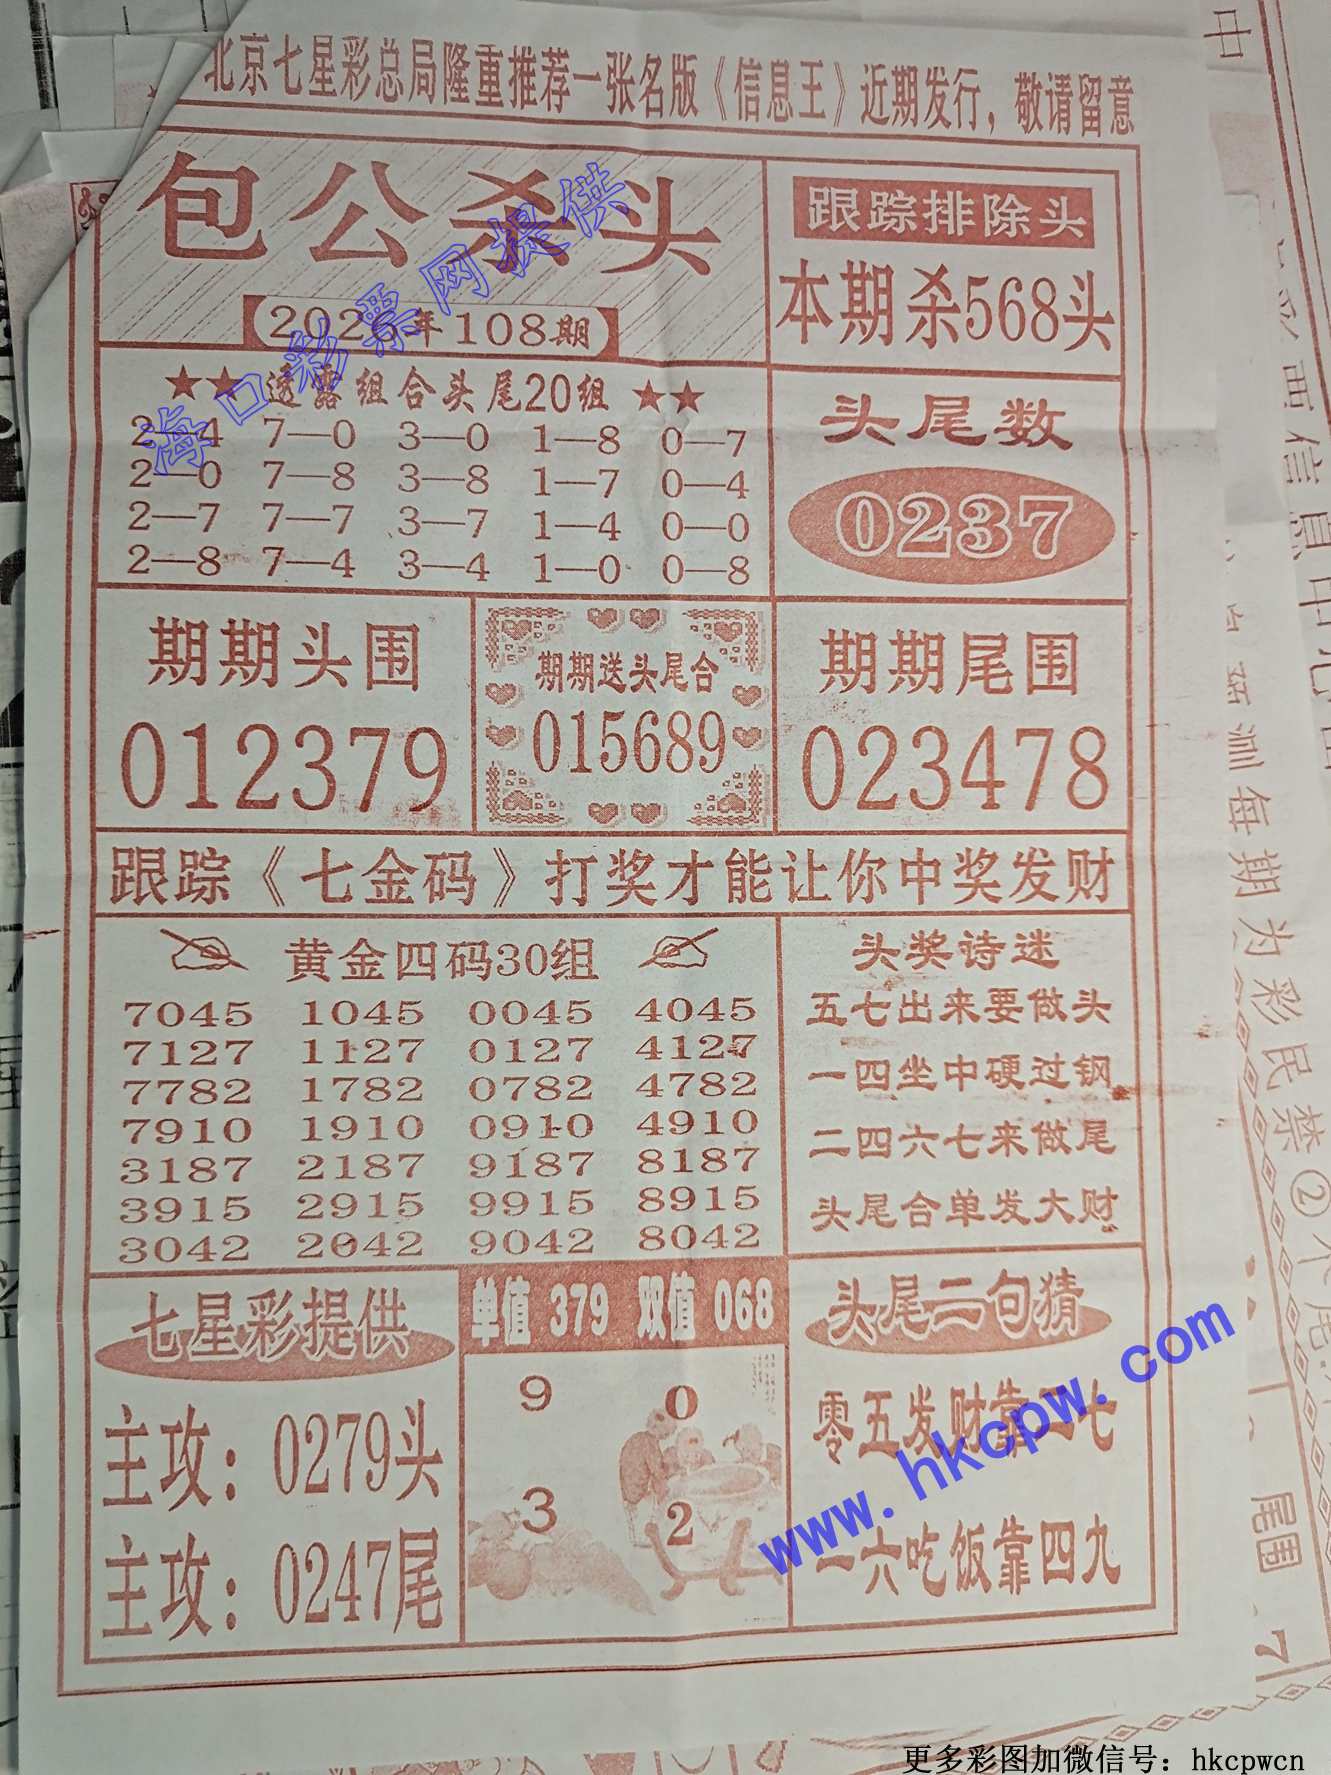 北京七星彩总局隆重推荐一张名版《信息王》近期发行，敬请留意
包公杀头
2026年108期
跟踪排除头
本期杀568头
★★透露组合头尾20组★★
2—4 7—0 3—0 1—8 0—7
2—0 7—8 3—8 1—7 0—4
2—7 7—7 3—7 1—4 0—0
2—8 7—4 3—4 1—0 0—8
头尾数
0237
期期头围
012379
期期送头尾合
015689
期期尾围
023478
跟踪《七金码》打奖才能让你中奖发财
黄金四码30组
7045 1045 0045 4045
7127 1127 0127 4127
7782 1782 0782 4782
7910 1910 0910 4910
3187 2187 9187 8187
3915 2915 9915 8915
3042 2042 9042 8042
头奖诗迷
五七出来要做头
一四坐中硬过钢
二四六七来做尾
头尾合单发大财
七星彩提供
主攻：0279头
主攻：0247尾
单值 379 双值 068
9 0
3 2
头尾二句猜
零五发财靠二七
一六吃饭靠四九
海口彩票网提供
www.hkcpw.com
每期为彩民禁②个尾
尾围
7
更多彩图加微信号：hkcpwcn